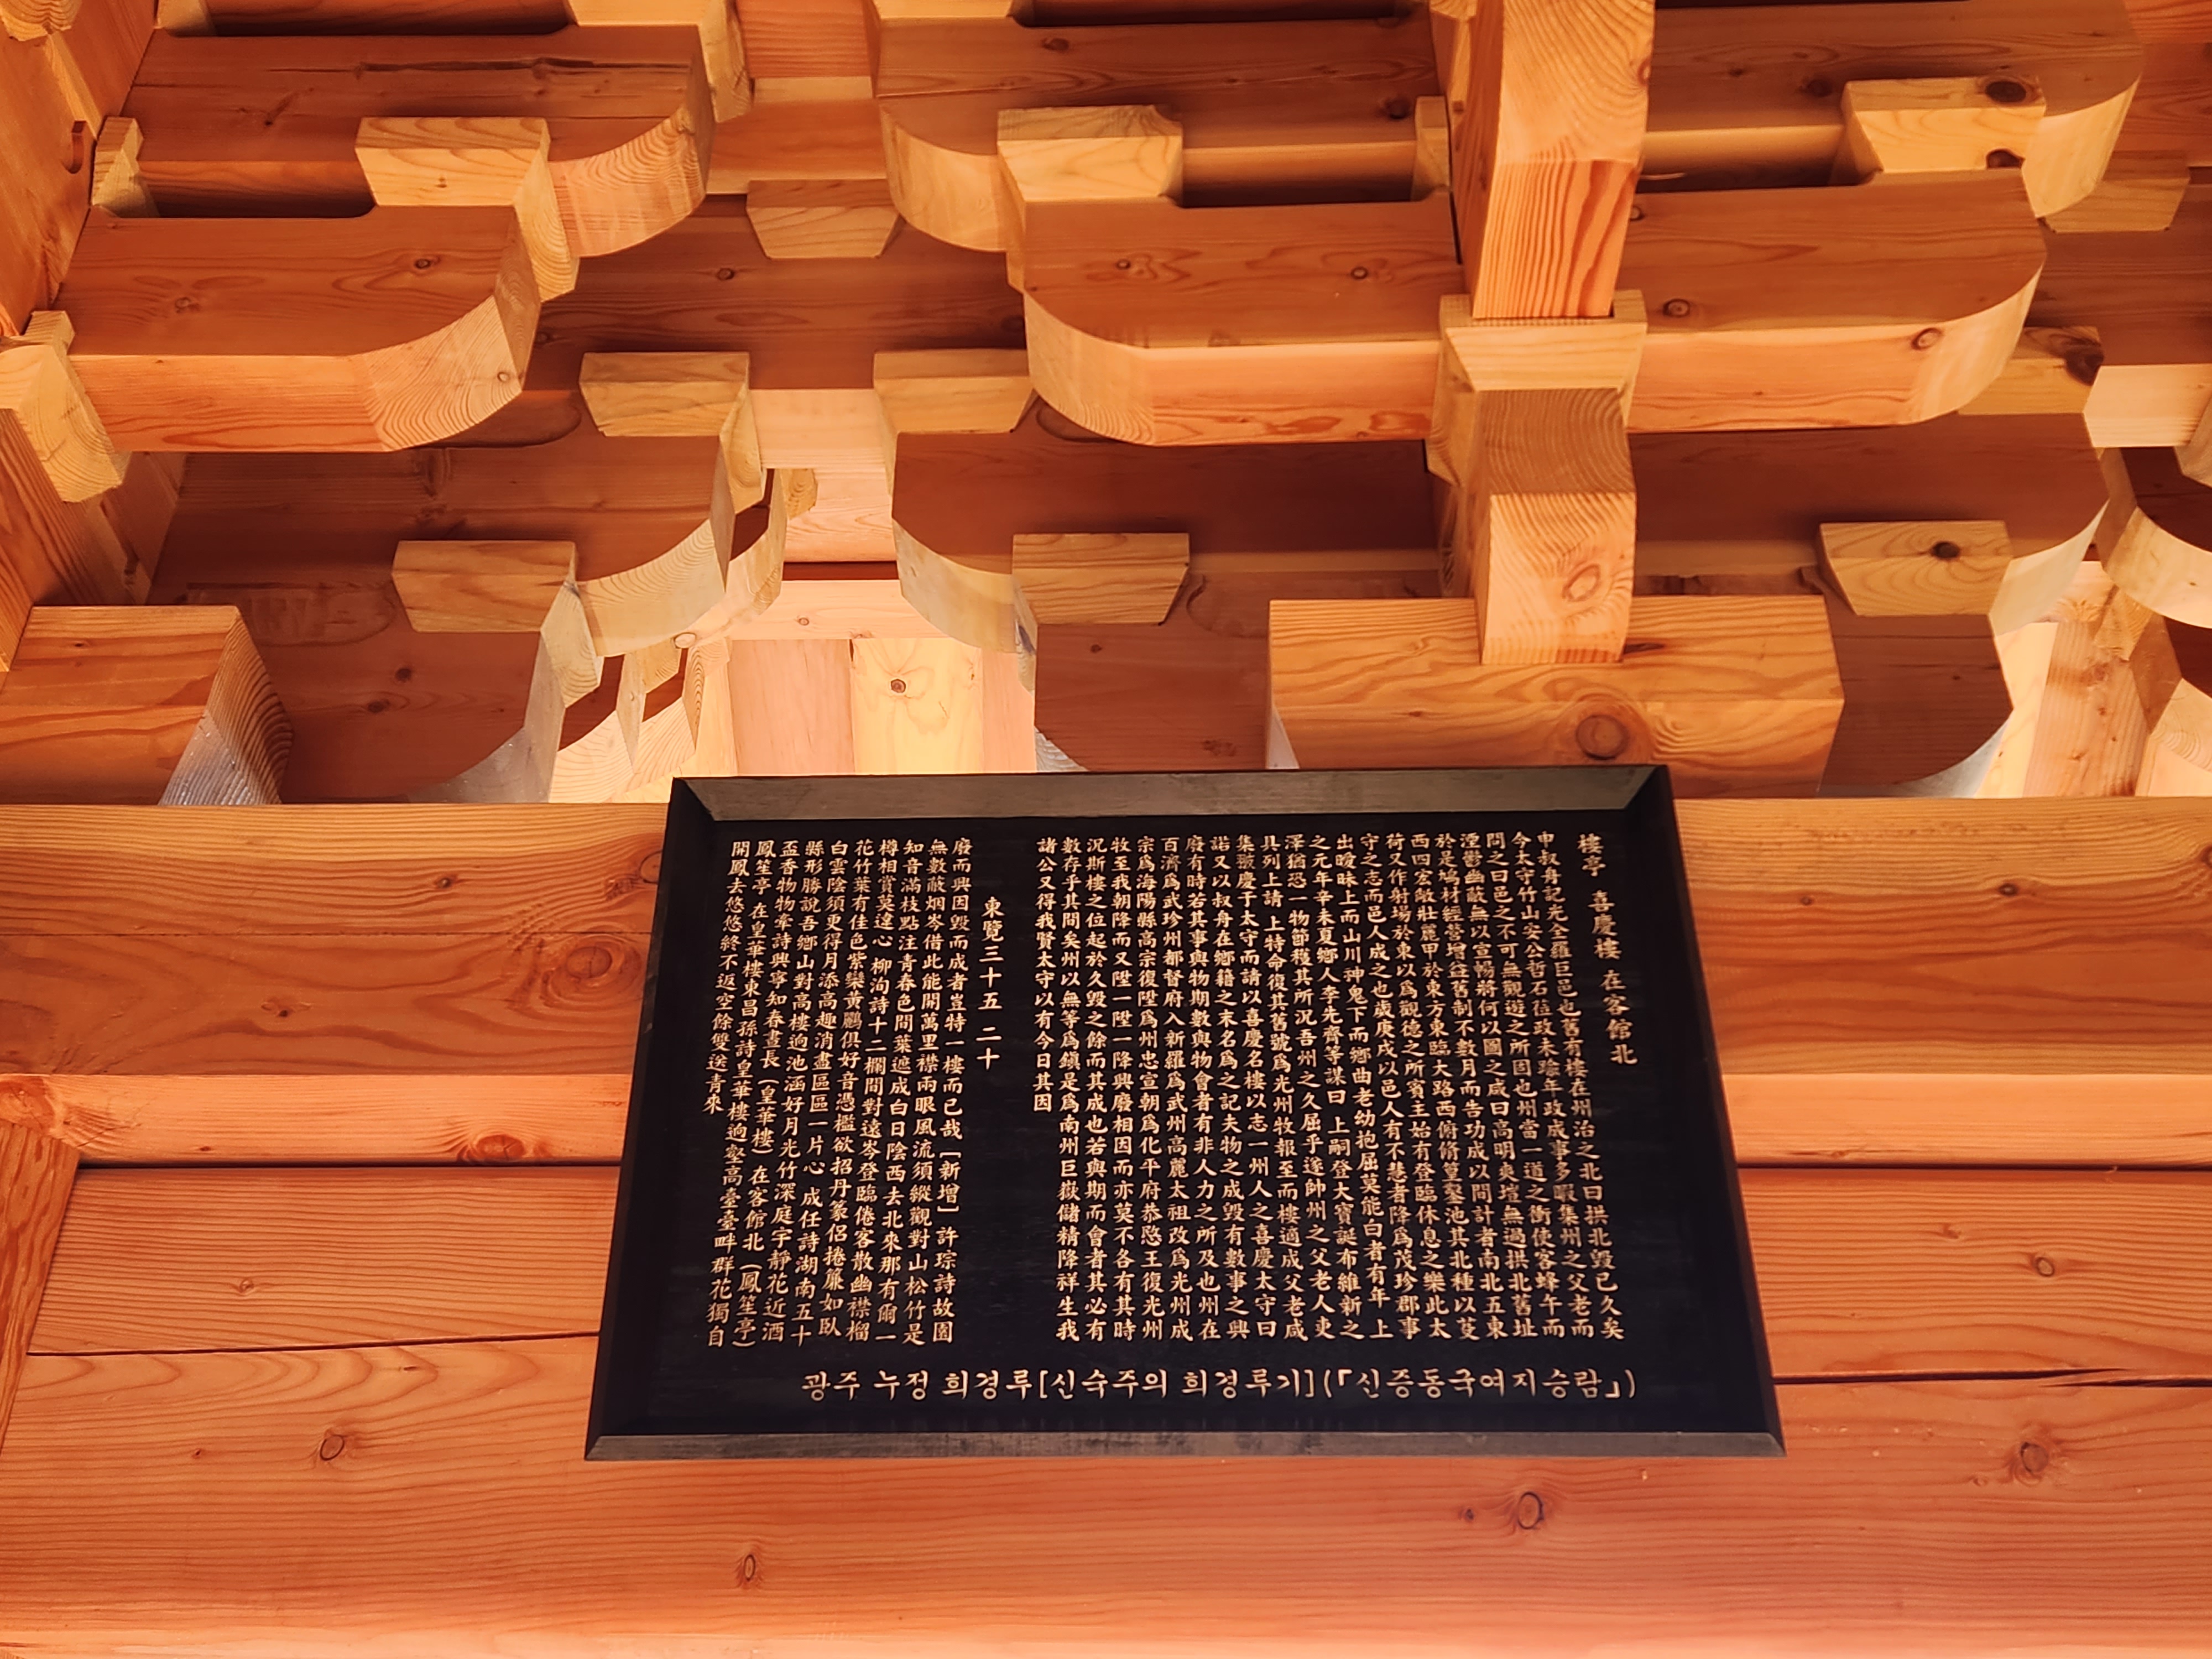 樓亭 喜慶樓 在客館北
申叔舟記光全羅巨邑也舊有樓在州治之北曰拱北毀已久矣
今太守竹山安公哲石莅政未踰年政成事多暇集州之父老而
問之曰邑之不可無觀遊之所固也州當一道之衝使客蜂午而
湮鬱幽蔽無以宣暢將何以圖之咸曰高明爽塏無過拱北舊址
於是鳩材經營增益舊制不數月而告功成以間計者南北五東
西四宏敞壯麗甲於東方東臨大路西俯脩篁鑿池其北種以芰
荷又作射場於東以爲觀德之所賓主始有登臨休息之樂此太
守之志而邑人成之也歲庚戌以邑人有不慧者降爲茂珍郡事
出曖昧上而山川神鬼下而鄕曲老幼抱屈莫能白者有年 上
之元年辛未夏鄕人李先齊等謀曰 上嗣登大寶誕布維新之
澤猶恐一物節穫其所況吾州之久屈乎遂帥州之父老人吏
具列上請 上特命復其舊號爲光州牧報至而樓適成父老咸
集 慶于太守而請以喜慶名樓以志一州人之喜慶太守曰
諾又以叔舟在鄕籍之末名爲之記夫物之成毀有數事之興
廢有時若其事與物期數與物會者有非人力之所及也州在
百濟爲武珍州都督府入新羅爲武州高麗太祖改爲光州成
宗爲海陽縣高宗復陞爲州忠宣朝爲化平府恭愍王復光州
牧至我朝降而又陞一陞一降興廢相因而亦莫不各有其時
況斯樓之位起於久毀之餘而其成也若與期而會者其必有
數存乎其間矣州以無等爲鎭是爲南州巨嶽儲精降祥生我
諸公又得我賢太守以有今日其因
東覽三十五 二十
廢而興因毀而成者豈特一樓而已哉 [新增] 許琮詩故園
無數蔽烟岑借此能開萬里襟兩眼風流須縱觀對山松竹是
知音滿枝點注靑春色間葉遮成白日陰西去北來那有爾一
樽相賞莫違心 柳洵詩十二欄間對遠岑登臨倦客散幽襟榴
花竹葉有佳色紫欒黃鸝俱好音憑檻欲招丹篆侶捲簾如臥
白雲陰須更得月添高趣消盡區區一片心 成任詩湖南五十
縣形勝說吾鄕山對高樓逈池涵好月光竹深庭宇靜花近酒
盃香物物牽詩興寧知春晝長 (皇華樓) 在客館北 (鳳笙亭)
鳳笙亭 在皇華樓東昌孫詩皇華樓逈壑高臺臺畔群花獨自
開鳳去悠悠終不返空餘雙送青來
광주 누정 희경루[신숙주의 희경루기](「신증동국여지승람」)